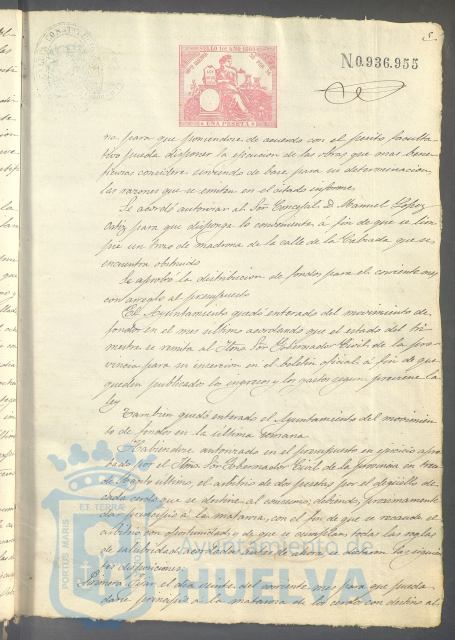 5
SELLO 10º AÑO 1880
UNA PESETA
N 0.936.955
no para que poniendose de acuerdo con el perito faculta
tivo pueda disponer la ejecucion de las obras que mas bene
ficiosas considere sirviendo de base para su determinacion
las razones que se emiten en el citado informe
Se acordó autorizar al Sor Concejal D. Manuel Lopez
Ortiz para que disponga lo conveniente á fin de que se lim
pie un trozo de madrona de la calle de la que se
encuentra obstruido
Se aprobó la distribucion de fondos para el corriente mes
con arreglo al presupuesto
El Ayuntamiento quedó enterado del movimiento de
fondos en el mes ultimo acordando que el estado del tri
mestre se remita al Iltmo Sor Gobernador Civil de la pro
vincia para su insercion en el boletin oficial á fin de que
queden publicados los ingresos y los gastos segun previene la
ley
Tambien quedó enterado el Ayuntamiento del movimien
to de fondos en la ultima semana
Habiendose autorizado en el presupuesto en ejercicio apro
bado por el Iltmo Sor Gobernador Civil de la provincia en trece
de ultimo, el arbitrio de dos pesetas por el degüello de
cada cerdo que se destine al consumo, debiendo proximamente
dar principio á la matanza, con el fin de que se recaude el
arbitrio con oportunidad y de que se cumplan todas las reglas
de salubridad acordadas se dictaron las siguien
tes disposiciones
Primera Que el dia veinte del corriente mes para que pueda
darse principio á la matanza de los cerdos con destino al
PORTUS MARIS ET TERRÆ
Ayuntamiento de
HUELVA